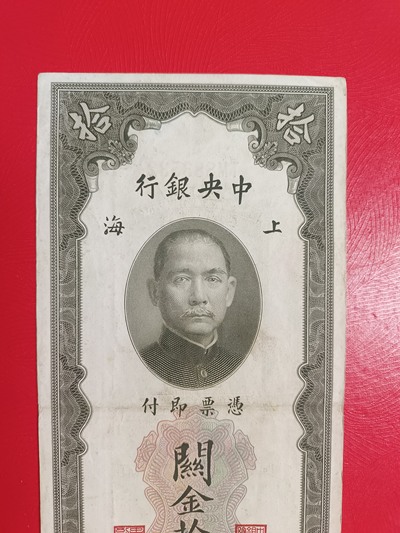 拾 拾
中央銀行
上海
憑票即付
關金拾